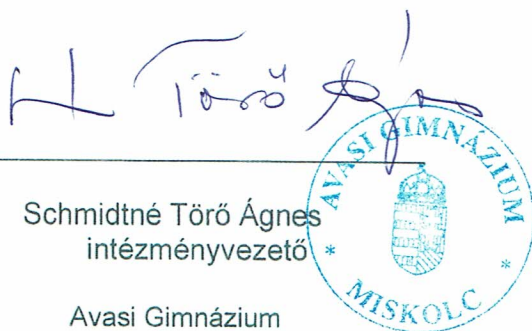 Törő Ágnes
Schmidtné Törő Ágnes
intézményvezető
Avasi Gimnázium
AVASI GIMNÁZIUM
* MISKOLC *